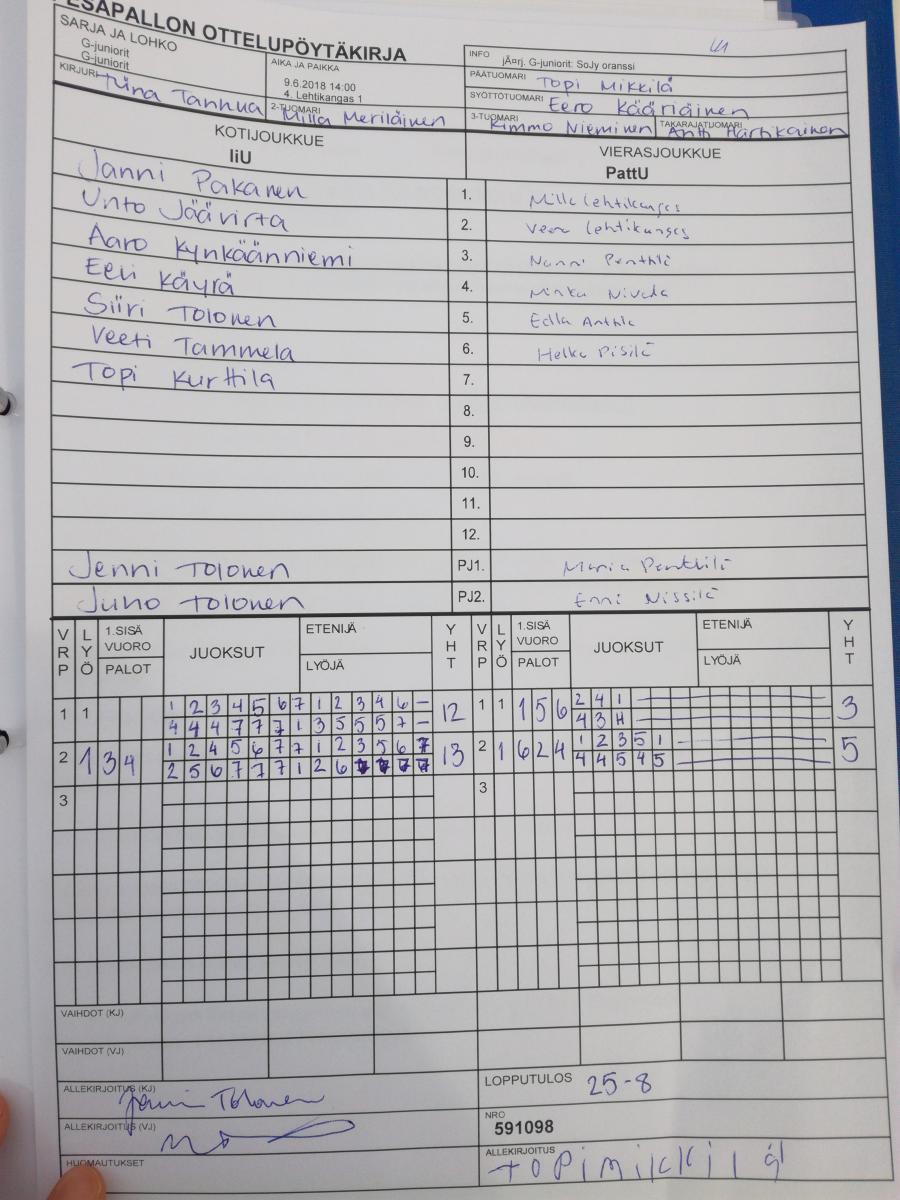 PESÄPALLON OTTELUPÖYTÄKIRJA
SARJA JA LOHKO
G-juniorit
G-juniorit
AIKA JA PAIKKA
9.6.2018 14:00
4. Lehtikangas 1
INFO jÃ¤rj. G-juniorit: SoJy oranssi
PÄÄTUOMARI Topi Mikkilä
SYÖTTÖTUOMARI Eero Kääriäinen
KIRJURI Tiina Tanhua
2-TUOMARI Milla Meriläinen
3-TUOMARI Kimmo Nieminen
TAKARAJATUOMARI Antti Hartikainen
KOTIJOUKKUE
IiU
VIERASJOUKKUE
PattU
Janni Pakanen 1. Milla Lehtikangas
Unto Jäävirta 2. Veera Lehtikangas
Aaro Kynkäänniemi 3. Nanni Penttilä
Eeli Käyrä 4. Minka Nivala
Siiri Tolonen 5. Edla Anttila
Veeti Tammela 6. Helka Pisilä
Topi Kurttila 7.
8.
9.
10.
11.
12.
Jenni Tolonen PJ1. Maria Penttilä
Juho Tolonen PJ2. Enni Nissilä
VRP LYÖ 1.SISÄ VUORO PALOT JUOKSUT ETENIJÄ LYÖJÄ YHT VRP LYÖ 1.SISÄ VUORO PALOT JUOKSUT ETENIJÄ LYÖJÄ YHT
1 1 1 2 3 4 5 6 7 1 2 3 4 6 – 12 1 1 1 5 6 2 4 1 3
4 4 4 7 7 7 1 3 5 5 5 7 – 4 3 H
2 1 3 4 1 2 4 5 6 7 7 1 2 3 5 6 7 13 2 1 6 2 4 1 2 3 5 1 5
2 5 6 7 7 7 1 2 6 7 7 7 7 4 4 5 4 5
3 3
VAIHDOT (KJ)
VAIHDOT (VJ)
ALLEKIRJOITUS (KJ) Jenni Tolonen
LOPPUTULOS 25-8
ALLEKIRJOITUS (VJ)
NRO
591098
HUOMAUTUKSET
ALLEKIRJOITUS topimikkilä